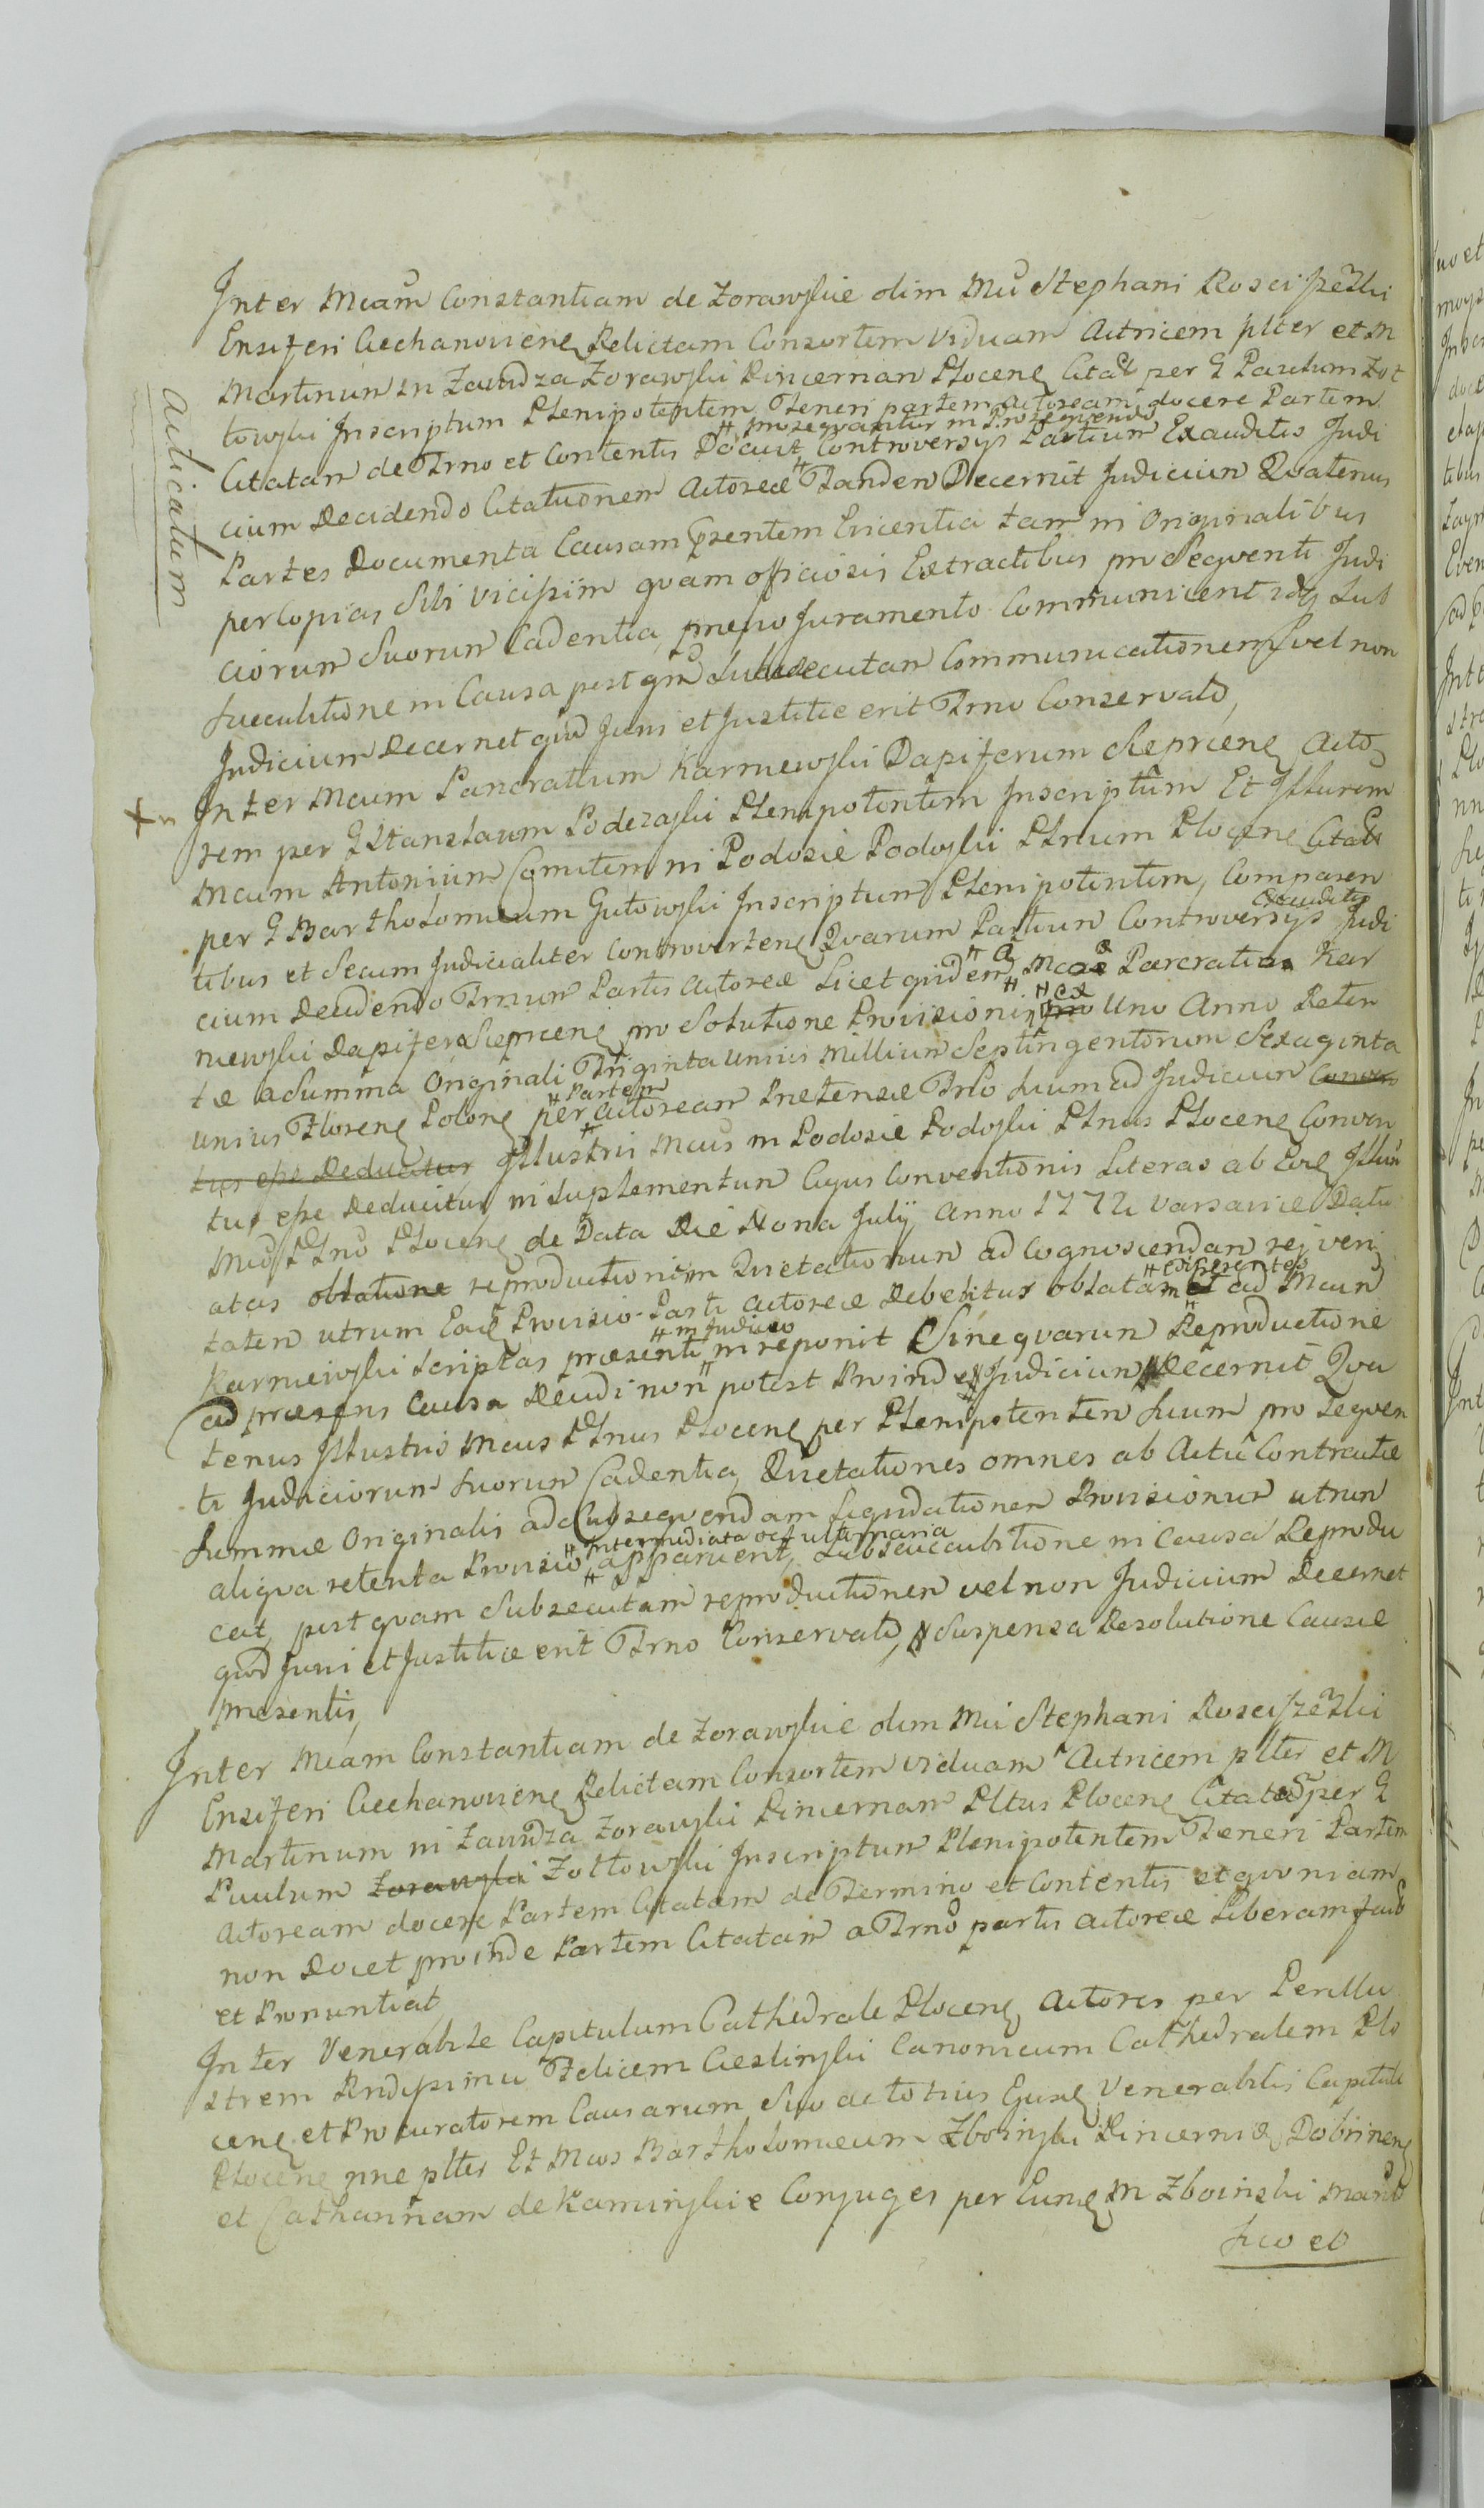 Inter Mcam Constantiam de Zorawskie olim Mci Stephani Rosciszewski
Ensiferi Ciechanoviens Relictam Consortem Viduam Actricem plter et M
Martinum in Zawidza Zorawski Pincernam Plocens Citat per G Paulum Zot
towski Inscriptum Plenipotentem Teneri partem actoream docere Partem
Citatam de Trno et Contentis Docuit Controversys Partium Exauditis Judi
# prosequantur in Prosequendo
cium Decidendo Citationem Actoreæ # Tandem Decernit Judicium Quatenus
Partes Documenta Causam Psentem Concernentia tam in Originalibus
per Copias Sibi vicissim quam officiosis Extractibus pro Sequenti Judi
ciorum Suorum Cadentia, prævio Juramento Communicent idq Sub
Succubitione in Causa post qm Subsecutam Communicationem vel non
Judicium Decernet quid Juris et Justitie erit Trno Conservato,
Inter Mcum Pancratium Karniewski Dapiferum Sieprcens Acto
rem per G Stanslaum Podczaski Plenipotentem Inscriptum Et Illurem
Mcum Antonium Comitem in Podosie Podoski Pltnum Plocens Citat
per G Bartholomeum Gutowski Inscriptum Plenipotentem, Comparen
tibus et Secum Judicialiter Controvertens Quarum Partium Controversys Judi
Exauditis
cium Decidendo Trnum Partis Actoreæ Licet quidem # a # Mco Pancratio Kar
niewski Dapifero Sieprcens pro Solutione Provisionis # ex Uno Anno Reten
tæ a Summa Originali Triginta unius Millium Septingentorum Sexaginta
unius Floreno Polono per # Partem # actoream Prætensæ Trno suum ad Judicium Conven
tus esse Deducitur Illustris Mcus in Podosie Podoski Pltnus Plocens Conven
tus esse deducitur in suplementum Cujus Conventionis Literas ab Eod Illuri
Mco Pltno Plocens de Data Die Nona July Anno 1772 Varsaviæ Datu
atas oblatione reproductionem Quietationum ad Cognoscendam rei veri
tatem utrum Eadē Provisio Parti Actoreæ debebitur oblatam # existentes # et ad Mcum
Karniewski scriptas præsenti # in Judicio # in reponit Sine quarum Reproductione
ad præsens Causa Decidi non potest Proinde Judicium Decernit Qua
tenus Illustris Mcus Pltnus Plocens per Plenipotentem suum pro sequen
ti Judiciorum suorum Cadentia, Quietationes omnes ab Actu Contractæ
Summæ Originalis ad Subsequendam Liquidationem Provisionum utrum
aliqua retenta Provisio # intermediata aut ultimaria # apparuerit, Sub Succubitione in Causa Reprodu
cat, post quam Subsecutam reproductionem vel non Judicium Decernet
quod Juri et Justitiæ erit Trno Conservato, Suspensa Resolutione Causæ
præsentis,
Inter Mcam Constantiam de Zorawskie olim Mci Stephani Rosciszewski
Ensiferi Ciechanoviens Relictam Consortem viduam Actricem plter et M
Martinum in Zawidza Zorawski Pincernam Pltus Plocens Citatos per G
Paulum Zorawski Zottowski Inscriptum Plenipotentem Teneri Partem
Actoream docere Partem Citatam de Termino et Contentis et quoniam
non Docet proinde Partem Citatam a Trno partis actoreæ Liberam facit
et Pronuntiat,
Inter Venerabile Capitulum Cathedrale Plocens Actores per Perillu
strem Rndissimū Felicem Cieslinski Canonicum Cathedralem Plo
cens et Procuratorem Causarum Suo ac totius Ejusd Venerabilis Capituli
Plocens nne plter Et Mcos Bartholomæum Zboinski Pincernidæ Dobrinens
et Catharinam de Kaminskie Conjuges per Eund M Zboinski Marito
suo et
Acticatum